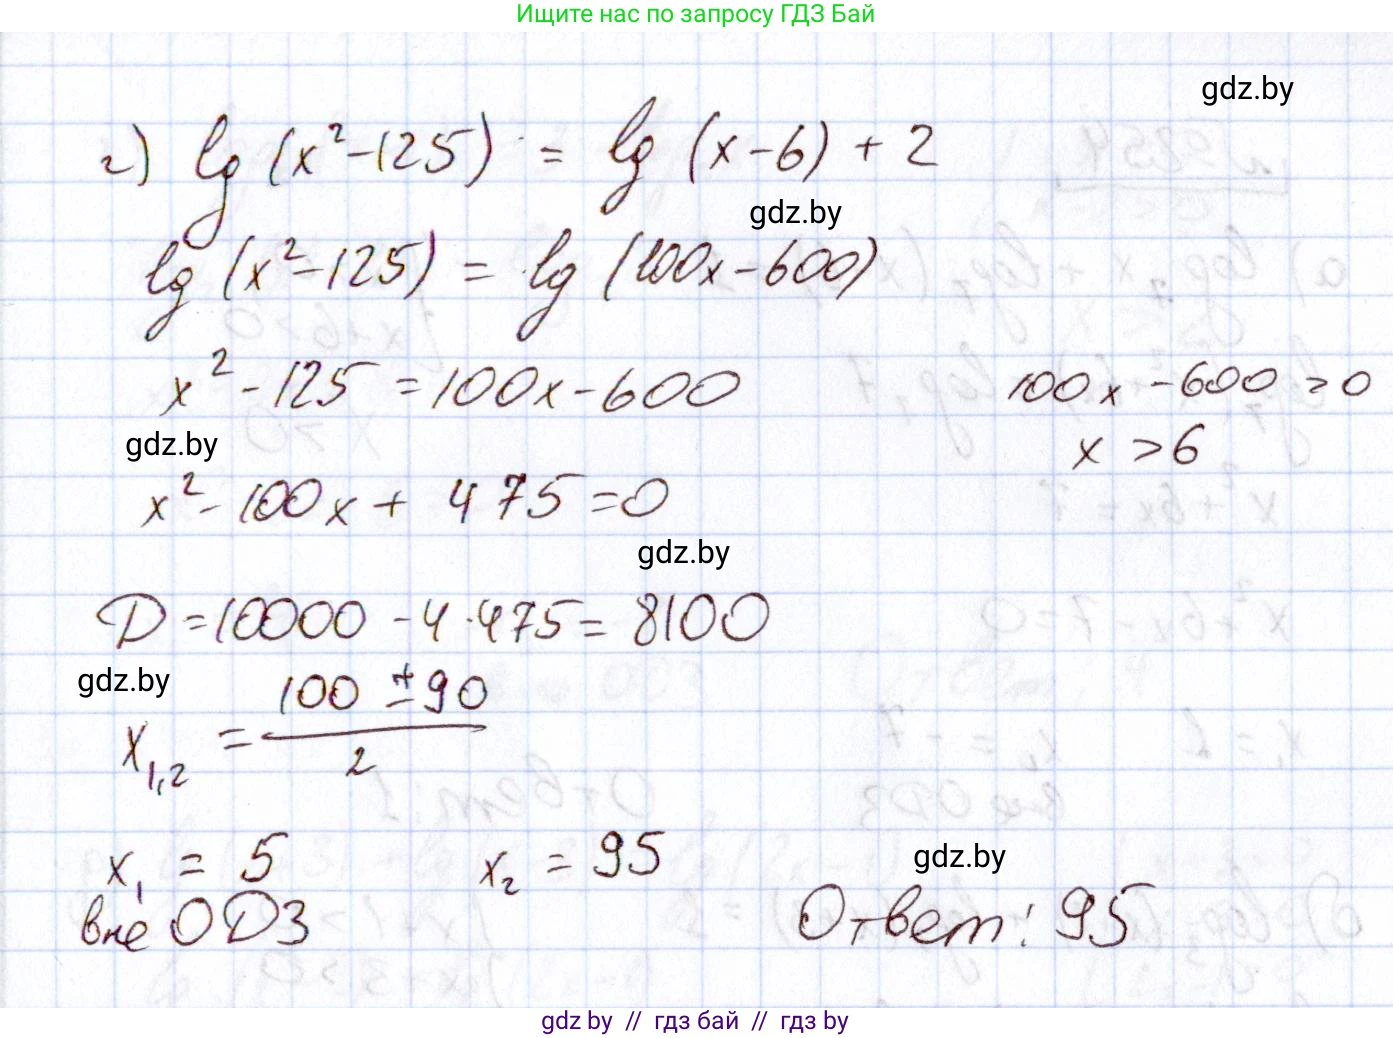 Ищите нас по запросу ГДЗ Бай
gdz.by
г) lg (x² - 125) = lg (x - 6) + 2
gdz.by
lg (x² - 125) = lg (100x - 600)
x² - 125 = 100x - 600
100x - 600 > 0
gdz.by
x > 6
x² - 100x + 475 = 0
gdz.by
D = 10000 - 4 · 475 = 8100
gdz.by
x₁,₂ = (100 ± 90) / 2
x₁ = 5 x₂ = 95
gdz.by
вне ОДЗ
Ответ: 95
gdz by // гдз бай // гдз by